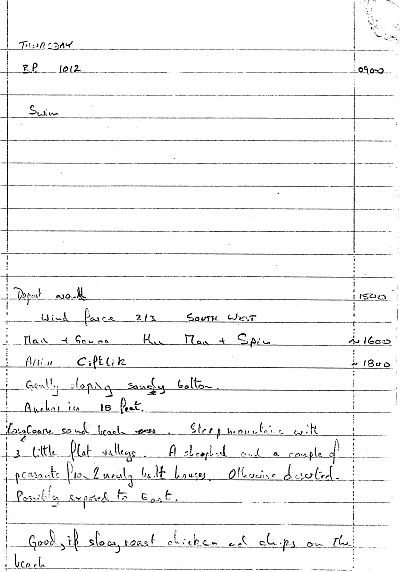 THURSDAY
B.P. 1012 0900
Swim
Depart 1500
Wind force 2/3 SOUTH WEST
Main + Genoa then Main + Spin ~1600
Arrive Ciftlik ~1800
Gently sloping sandy bottom.
Anchor in 18 feet.
Long coarse sand beach. Steep mountains with
3 little flat valleys. A shepherd and a couple of
peasants from 2 newly built houses. Otherwise deserted.
Possibly exposed to East.
Good, if slow, roast chicken and chips on the
beach